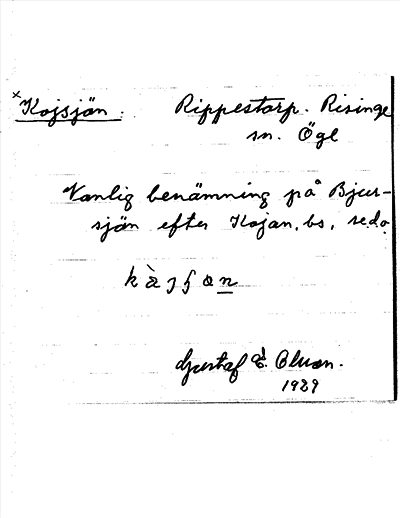 × Kojsjön. Rippestorp. Risinge
sn. Ögl
Vanlig benämning på Bjur-
sjön efter Kojan, bs, se d.o.
Gustaf
1929